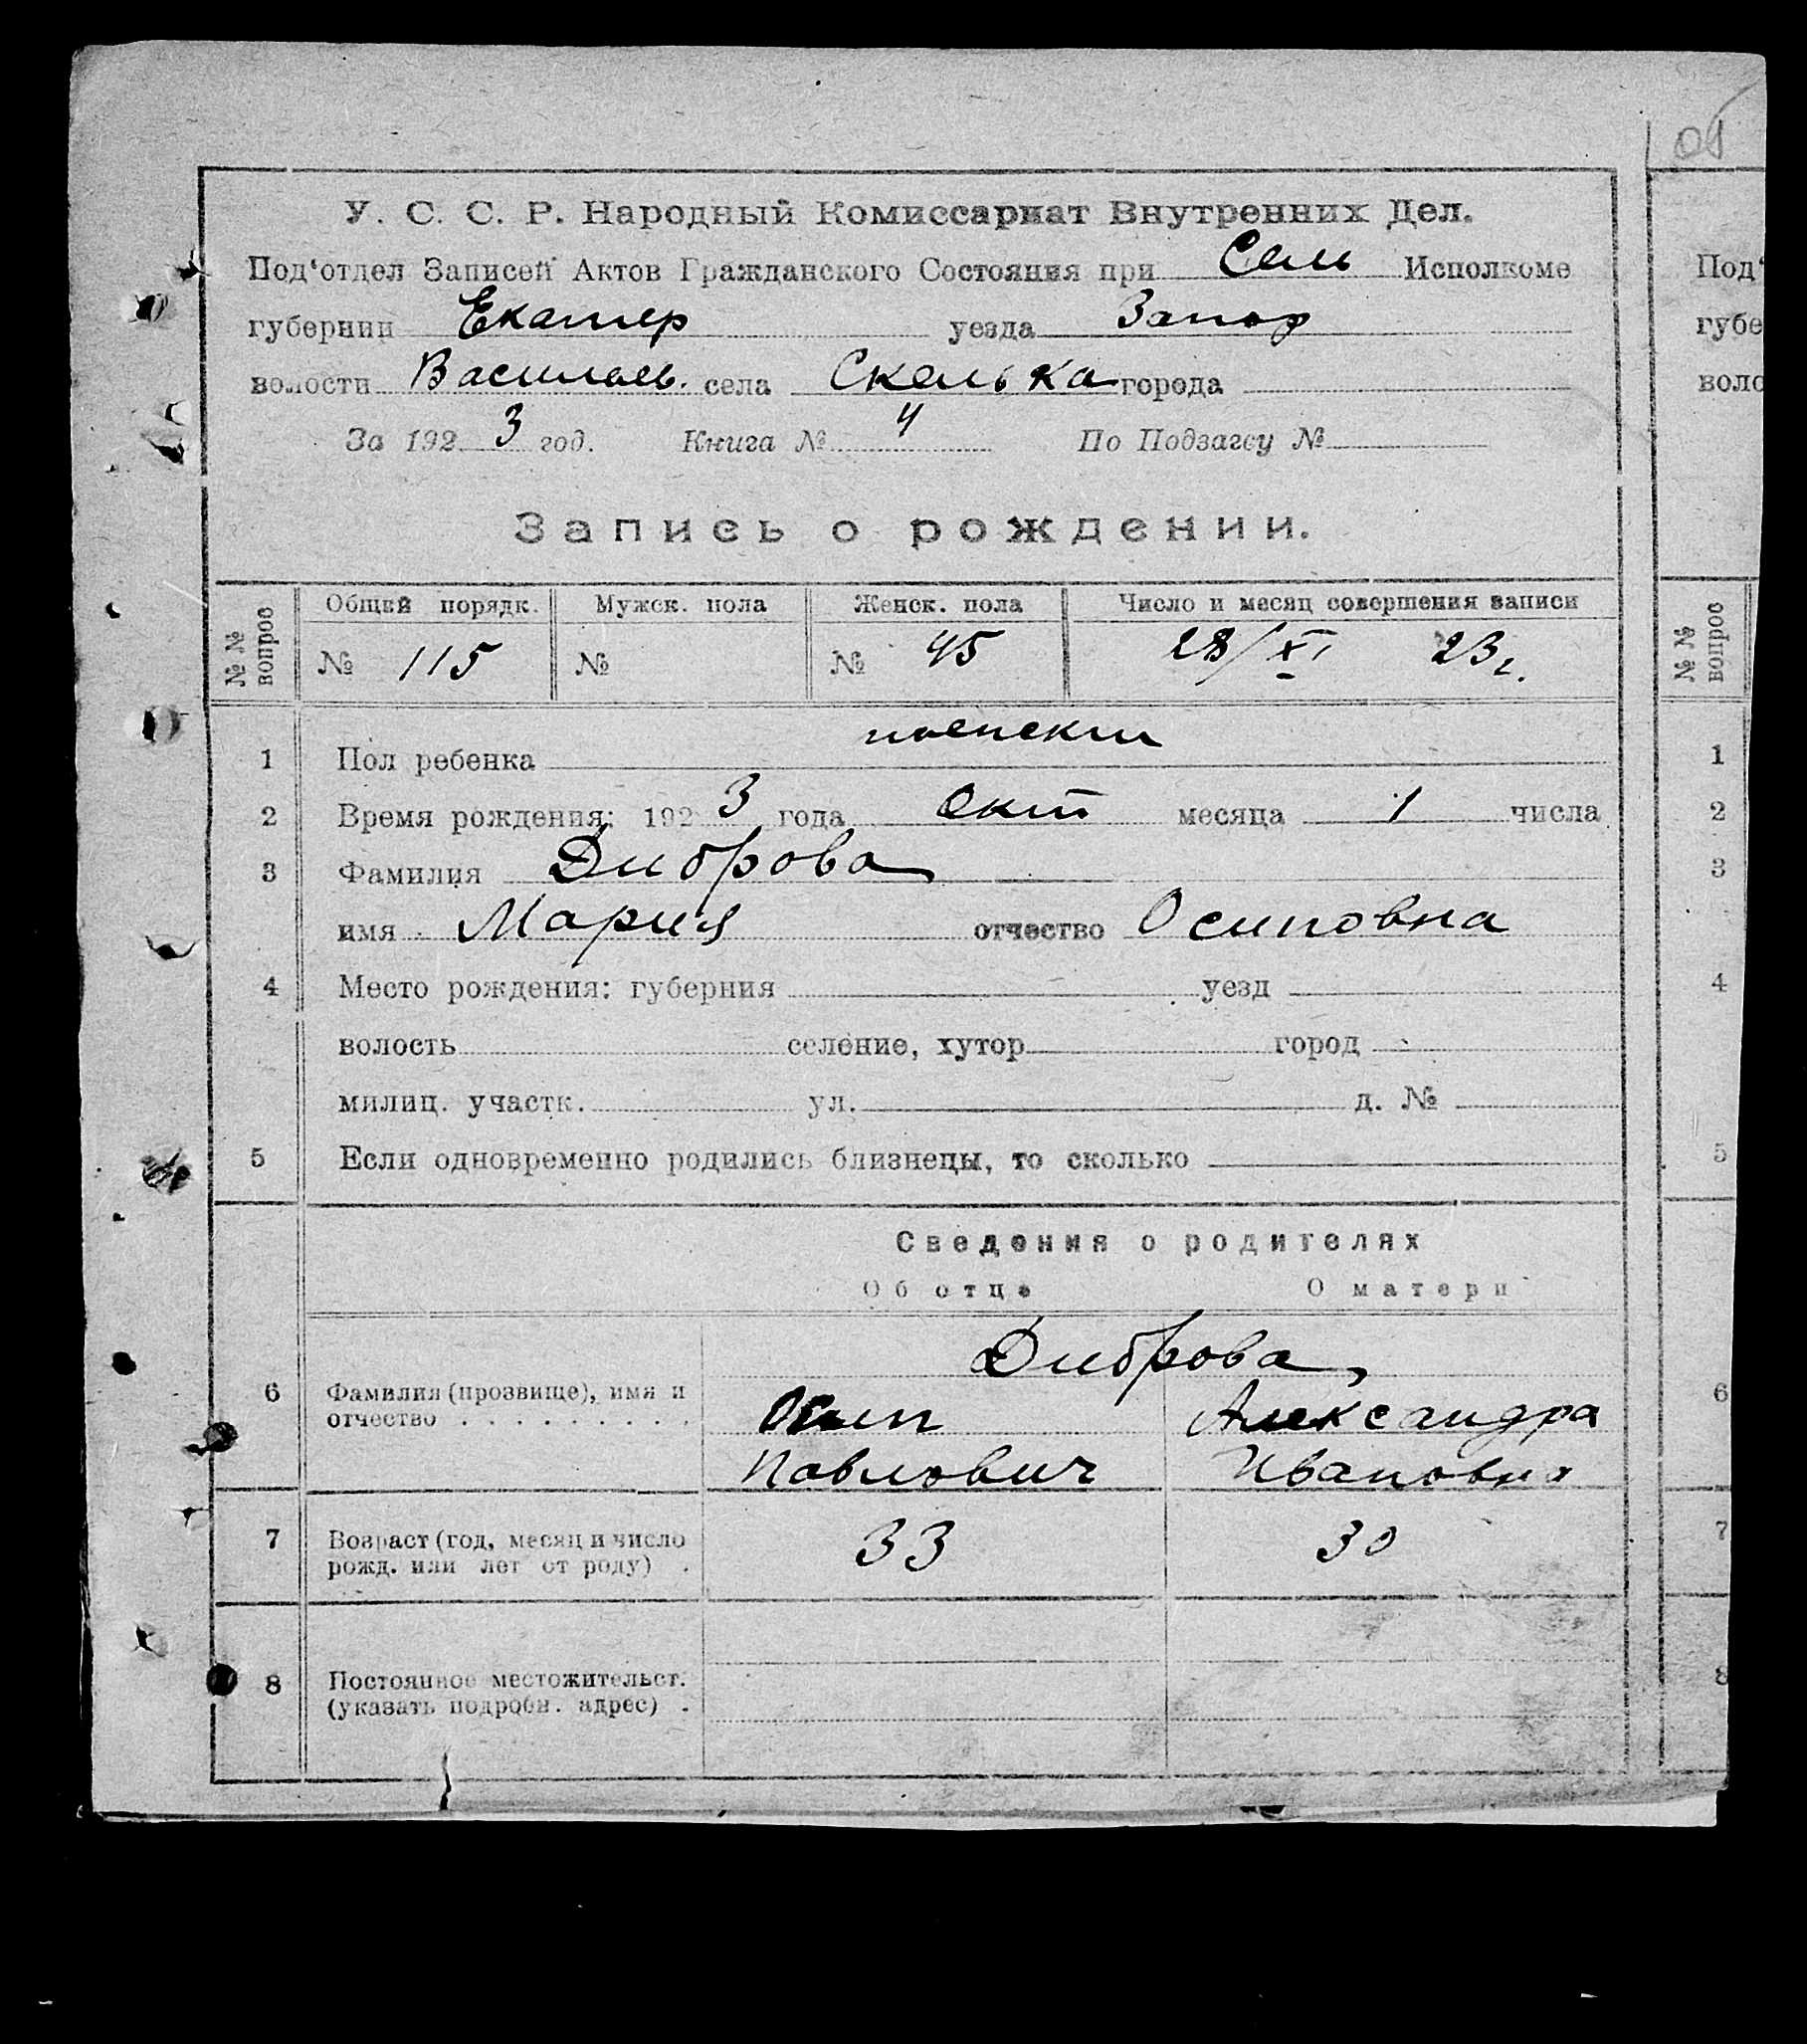 об
У. С. С. Р. Народный Комиссариат Внутренних Дел.
Под‘отдел Записей Актов Гражданского Состояния при Сель Исполкоме
губернии Екатер уезда Запор
волости Васильев. села Скелька города
За 1923 год. Книга № 4 По Подзагсу №
Запись о рождении.
№ № вопрос Общий порядк. Мужск. пола Женск. пола Число и месяц совершения записи
№ 115 № № 45 28/XI 23 г.
1 Пол ребенка женский
2 Время рождения: 1923 года Окт месяца 1 числа
3 Фамилия Диброва
имя Мария отчество Осиповна
4 Место рождения: губерния уезд
волость селение, хутор город
милиц. участк. ул. д. №
5 Если одновременно родились близнецы, то сколько
Сведения о родителях
Об отце О матери
Диброва
6 Фамилия (прозвище), имя и отчество . . . . . . . . . Осип Александра
Павлович Ивановна
7 Возраст (год, месяц и число 33 30
рожд. или лет от роду) .
8 Постоянное местожительст.
(указать подробн. адрес) .
Под‘
губе
воло
№ № вопрос
1
2
3
4
5
6
7
8